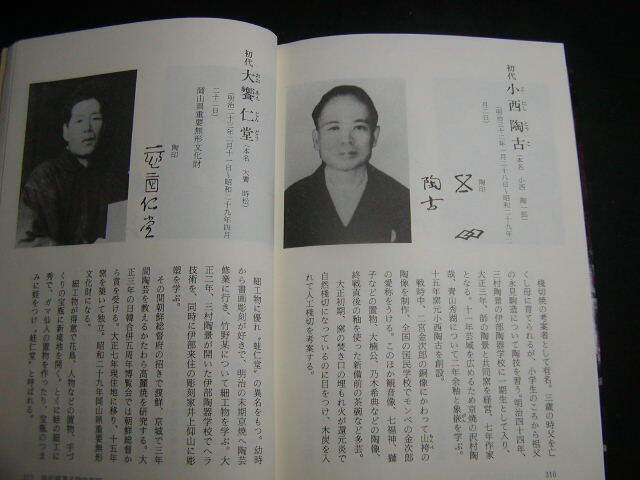 初代
小西陶古
こにしとうこ
(本名 小西 陶一郎)
(明治三十二年二月二十八日〜昭和二十九年二
月二日)
陶印
陶古
桟切焼の考案者として有名。三歳の時父を亡
くし母に育てられるが、小学生のころから祖父
の永見駒造について陶技を習う。明治四十四年、
三村陶景の伊部陶器学校に一期生として入り、
大正三年、師の陶景と共同窯を経営、七年作家
となる。十一年芸域を広めるため京焼の沢村陶
哉、青山秀湖について二年余釉と象嵌を学ぶ。
十五年窯元小西陶古を創設。
戦時中、二宮金次郎の銅像にかわって山袴の
陶像を制作、全国の国民学校にモンペの金次郎
の愛称をうける。このほか観音像、七福神、獅
子などの置物、大楠公、乃木希典などの陶像、
終戦直後の釉を使った新備前の茶碗など多芸。
大正初期、窯の焚き口の埋もれ火が還元炎で
自然桟切になっているのに目をつけ、木炭を入
れて人工桟切を考案する。
310
初代
大饗仁堂
おおあえじんどう
(本名 大饗 時松)
(明治二十三年二月十一日〜昭和二十九年四月
二十二日)
岡山県重要無形文化財
陶印
仁堂
細工物に優れ、〝蛙仁堂〟の異名をもつ。幼時
から書画彫刻が好きで、明治の末期京焼へ陶芸
修業に行き、竹野某について細工物を学ぶ。大
正二年、三村陶景が開いた伊部陶器学校でヘラ
技術を、同じ時に伊部来住の彫刻家井上仰山に彫
塑を学ぶ。
その間朝鮮総督府の招きで渡鮮、京城で三年
間陶芸を教えるかたわら高麗焼を研究する。大
正三年の日韓合併五周年博覧会では朝鮮総督か
ら賞を受ける。大正七年現住地に移り、十五年
窯を築いて独立。昭和二十九年岡山県重要無形
文化財になる。
細工物は得意で花鳥、人物などの置物、手づ
くりの宝瓶に新境地を開く。とくに蛙の細工に
秀で、ガマ仙人の置物を作ったり、宝瓶のつま
みに蛙をつけ〝蛙仁堂〟と呼ばれる。